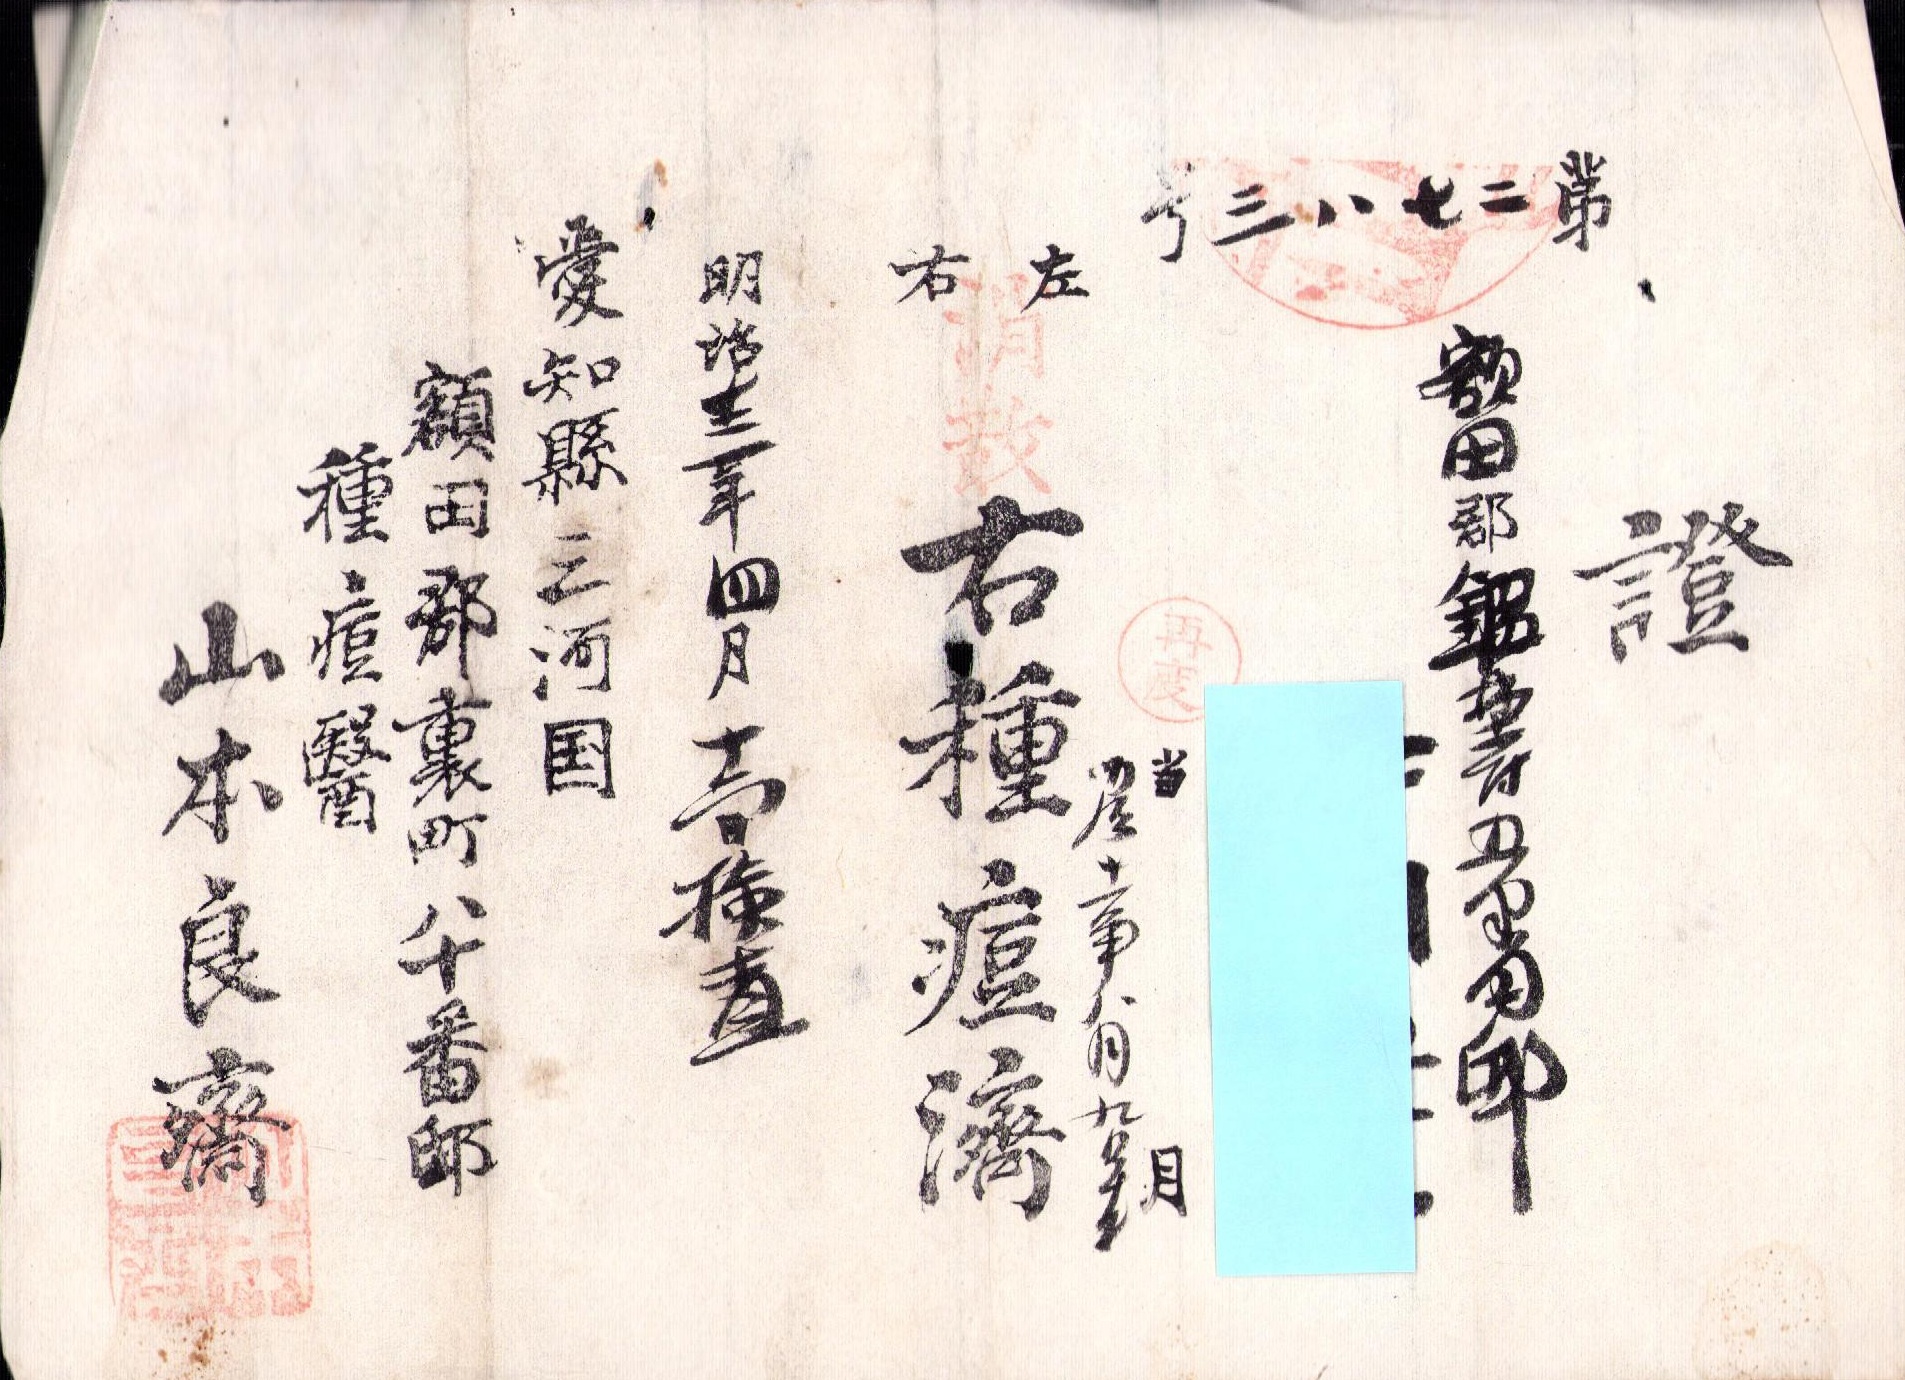 證
第二七八三号
額田郡
左
右
再度
当 月
十二年八月九日生
右種痘濟
明治十三年四月十一日検査
愛知縣三河国
額田郡裏町八十番邸
種痘醫
山本良齋